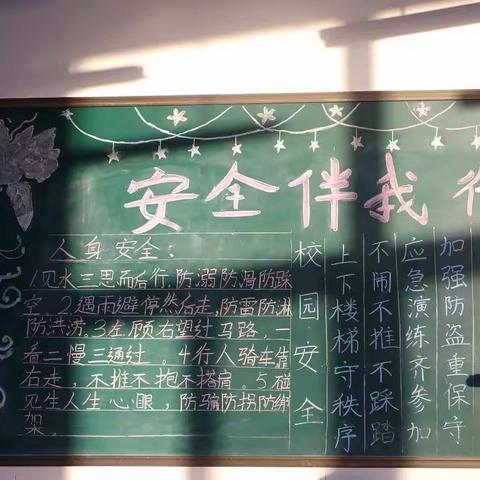 安全伴我
人身安全：
1.见水三思而后行,防溺防滑防踩
空。2.遇雨避停然后走,防雷防淋
防洪涝。3.左顾右望过马路,一
看二慢三通过。4.行人骑车靠
右走,不推不抱不搭肩。5.碰
见生人生心眼,防骗防拐防绑
架。
校园安全
上下楼梯守秩序
不闹不推不踩踏
应急演练齐参加
加强防盗重保守